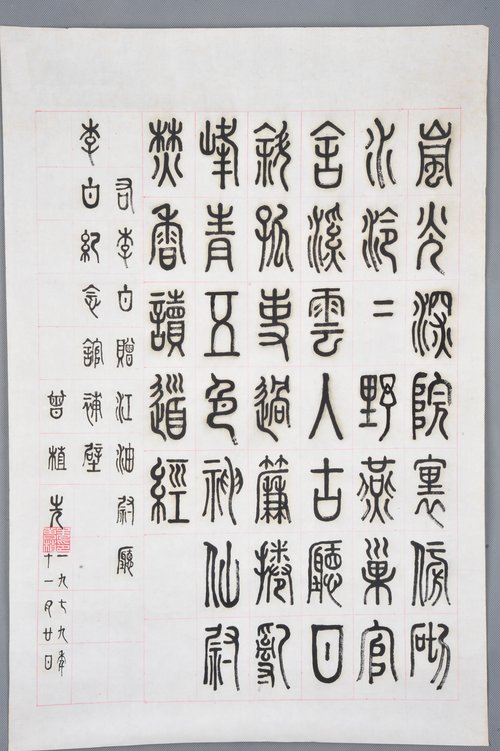 嵐光深院裏傍砌
水泠二野燕巢官
舍溪雲入古廳日
斜孤吏過簾捲亂
峰青五色神仙尉
焚香讀道經
右李白贈江油尉廳
李白紀念館補壁
曾植
一九七九年
十一月廿日